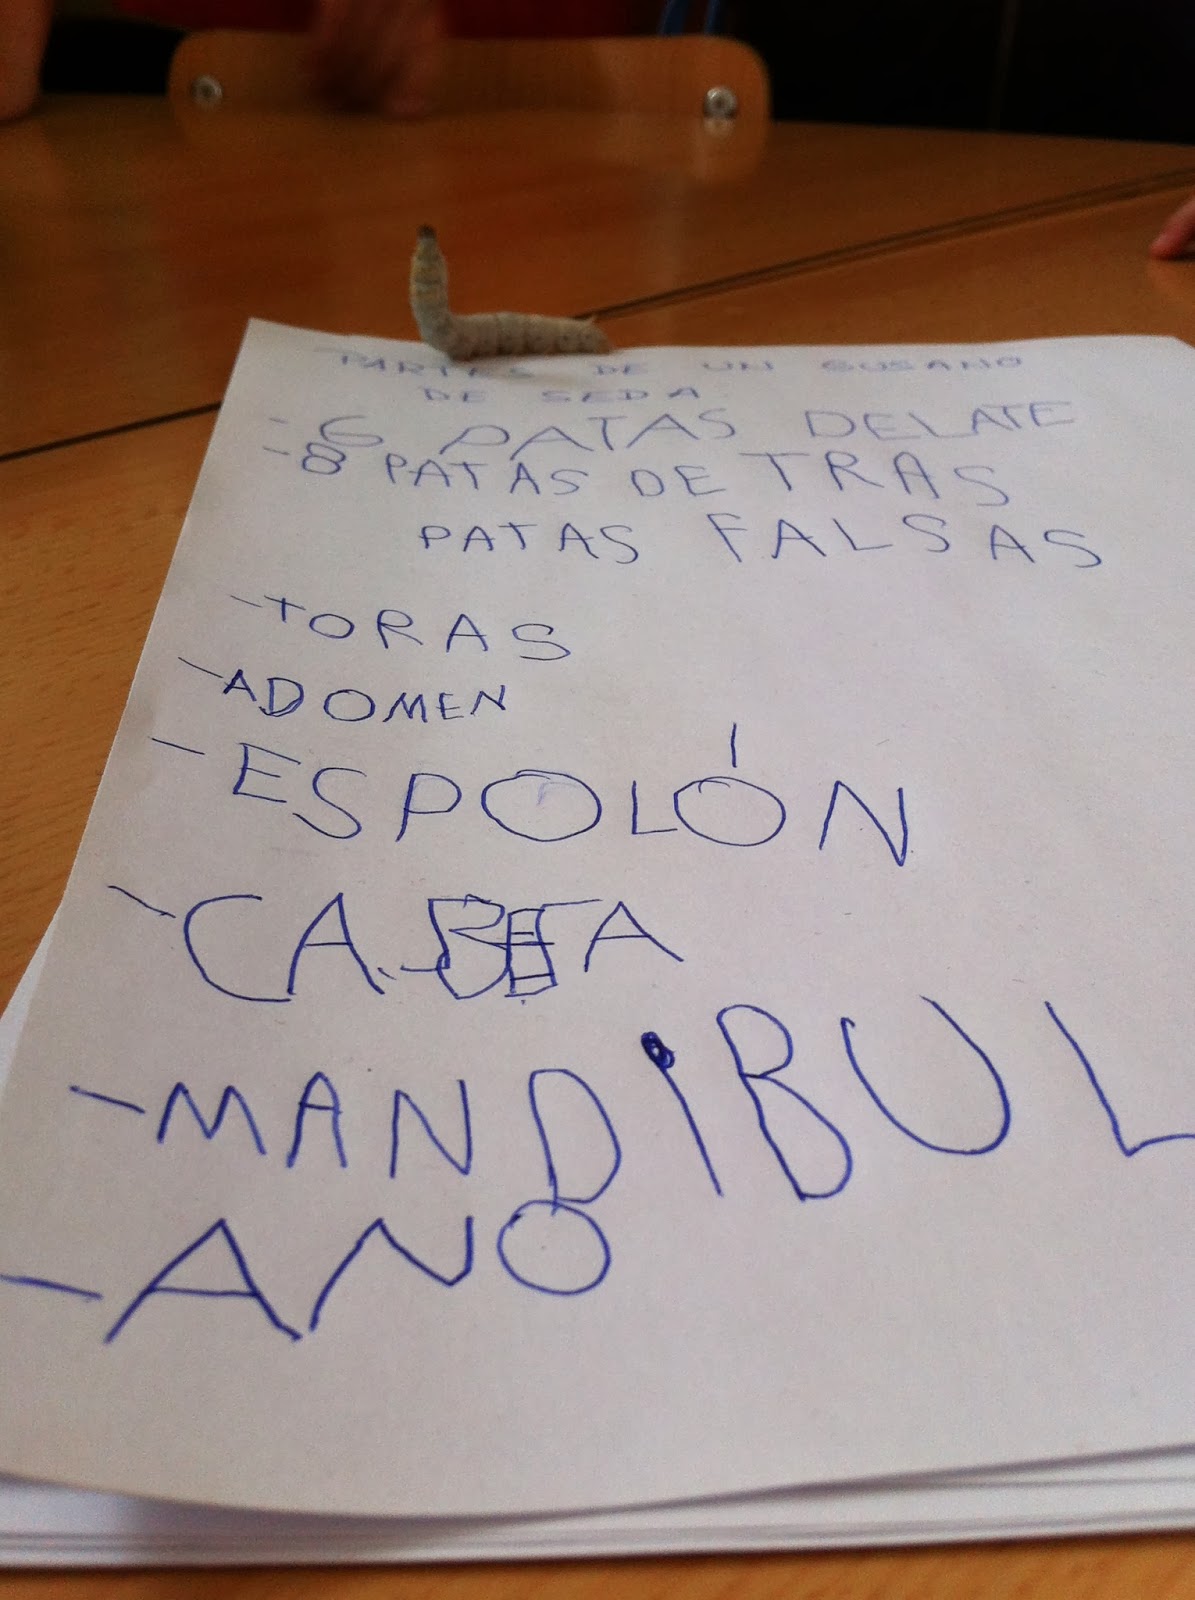 PARTES DE UN GUSANO
DE SEDA
- 6 PATAS DELATE
- 8 PATAS DE TRAS
PATAS FALSAS
- TORAS
- ADOMEN
- ESPOLÓN
- CABEZA
- MANDIBUL
- ANO